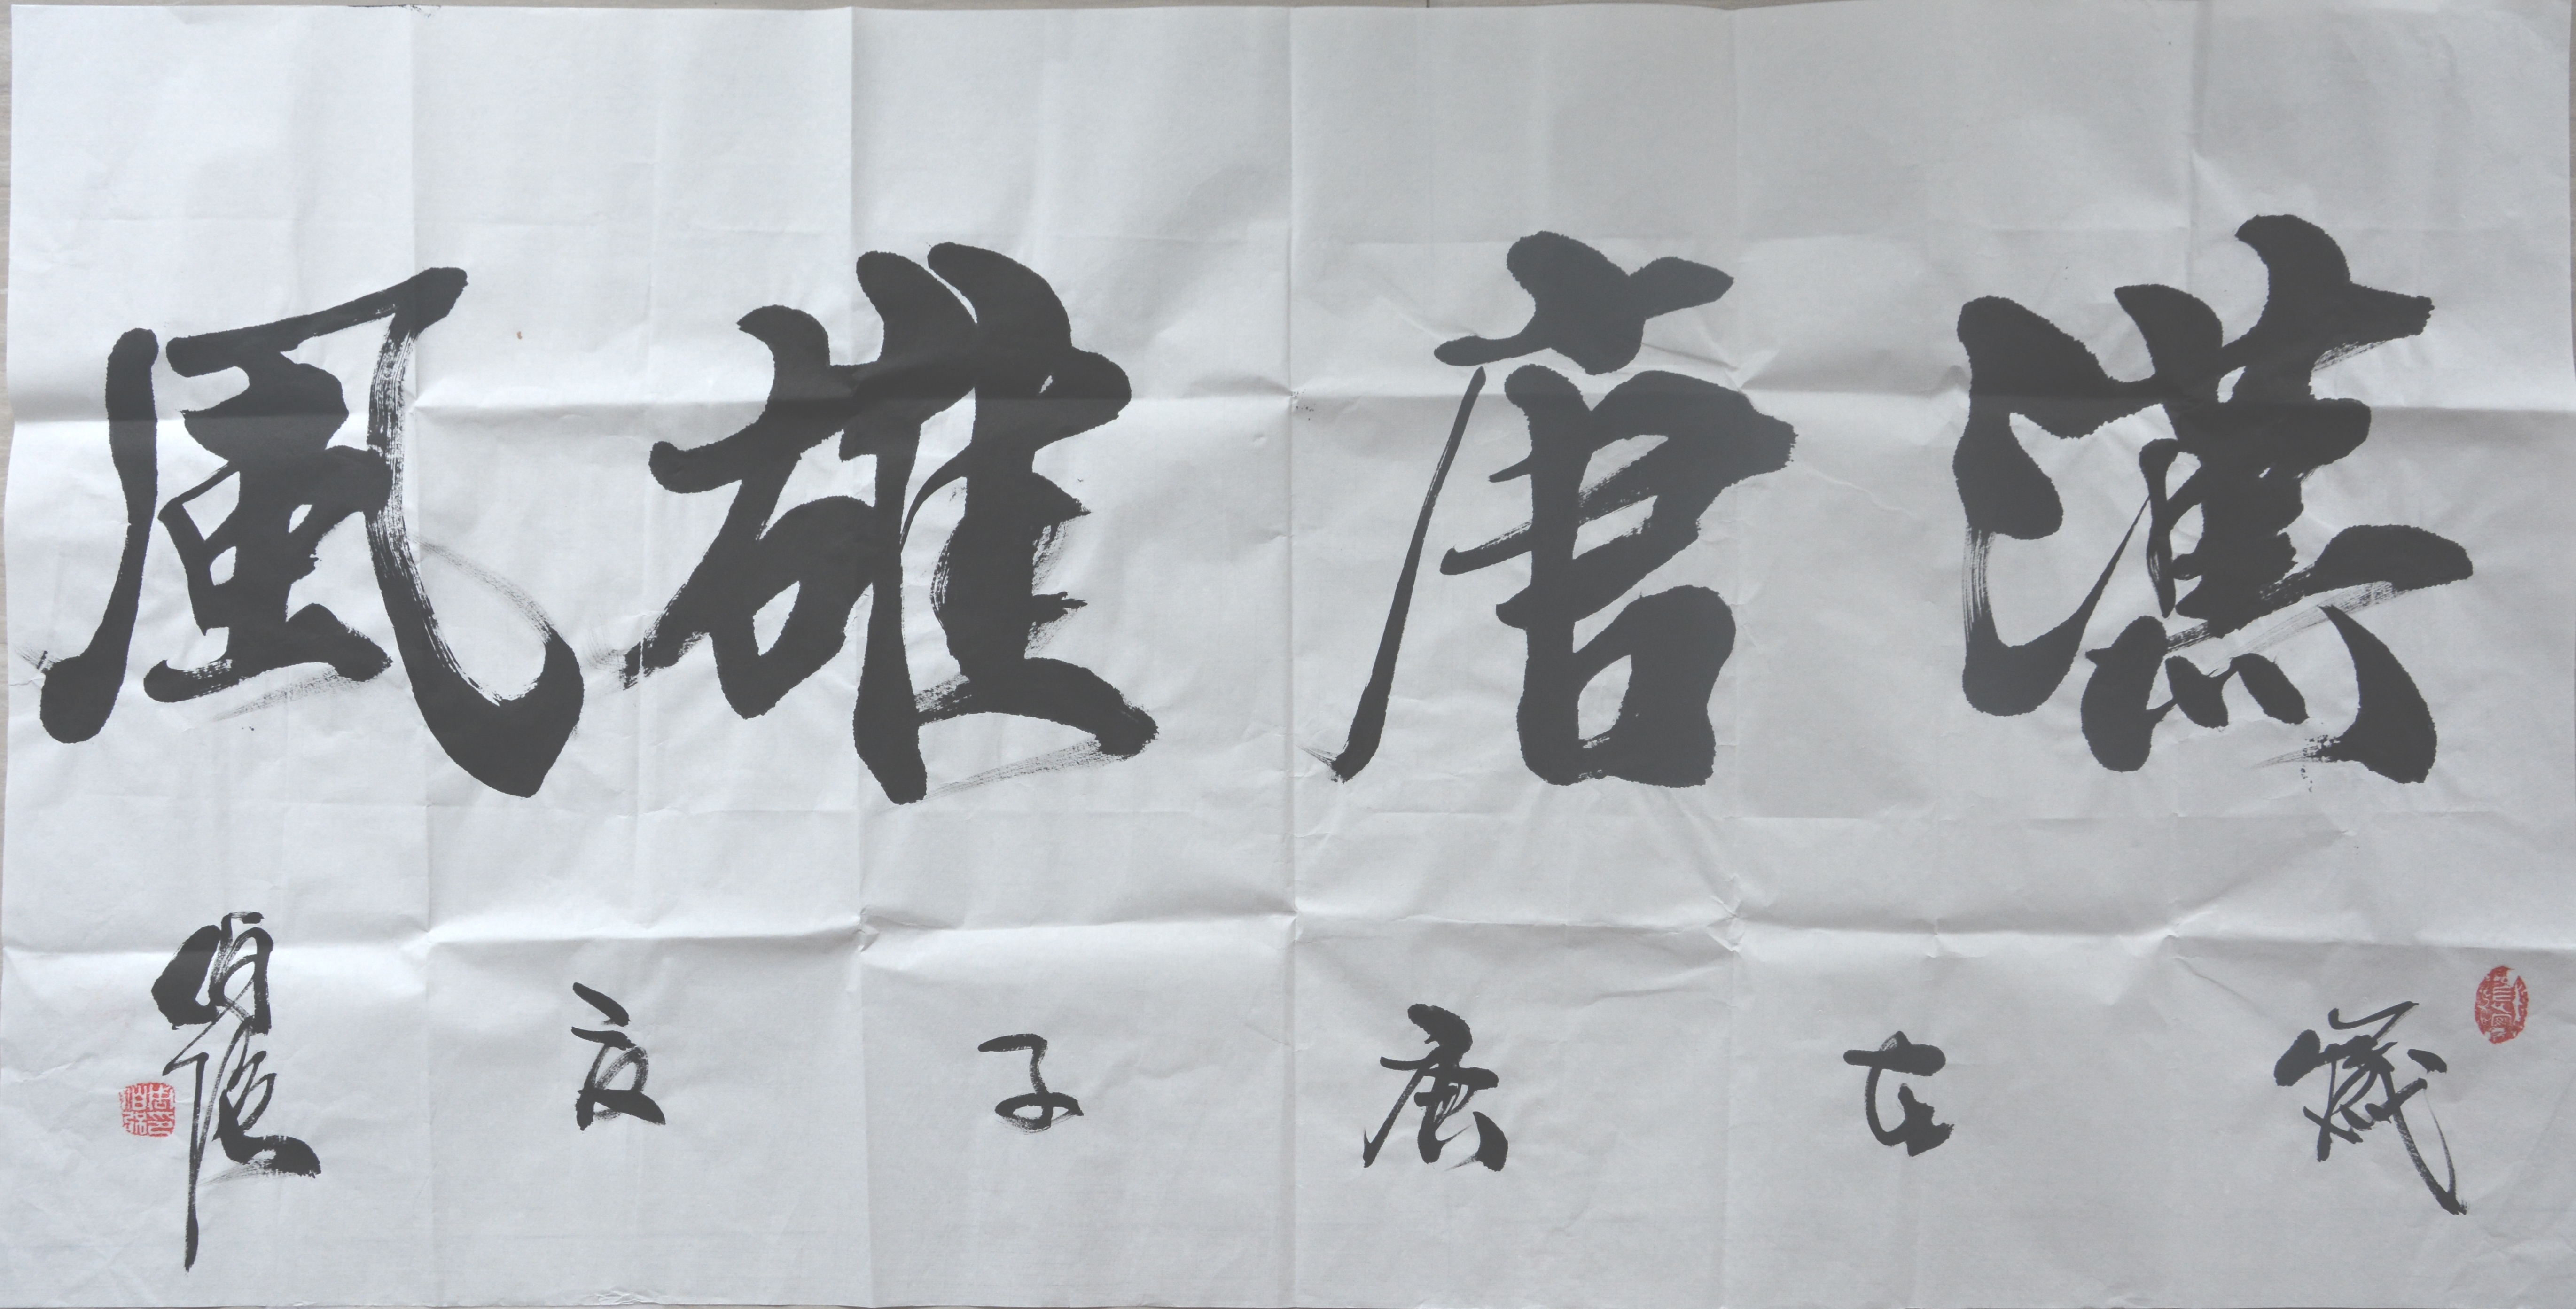 漢唐雄風
歲在庚子夏